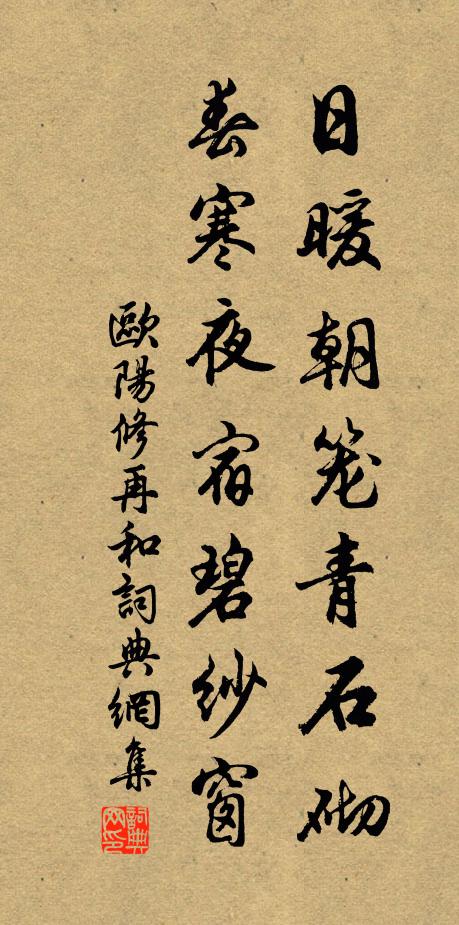 日暖朝笼青石砌
春寒夜宿碧紗窗
歐陽修再和詞典網集
詞典网印